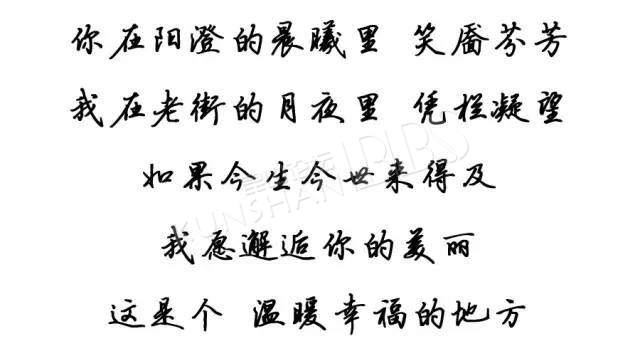 你在阳澄的晨曦里 笑靥芬芳
我在老街的月夜里 凭栏凝望
如果今生今世来得及
我愿邂逅你的美丽
这是个 温暖幸福的地方
KUNSHAN